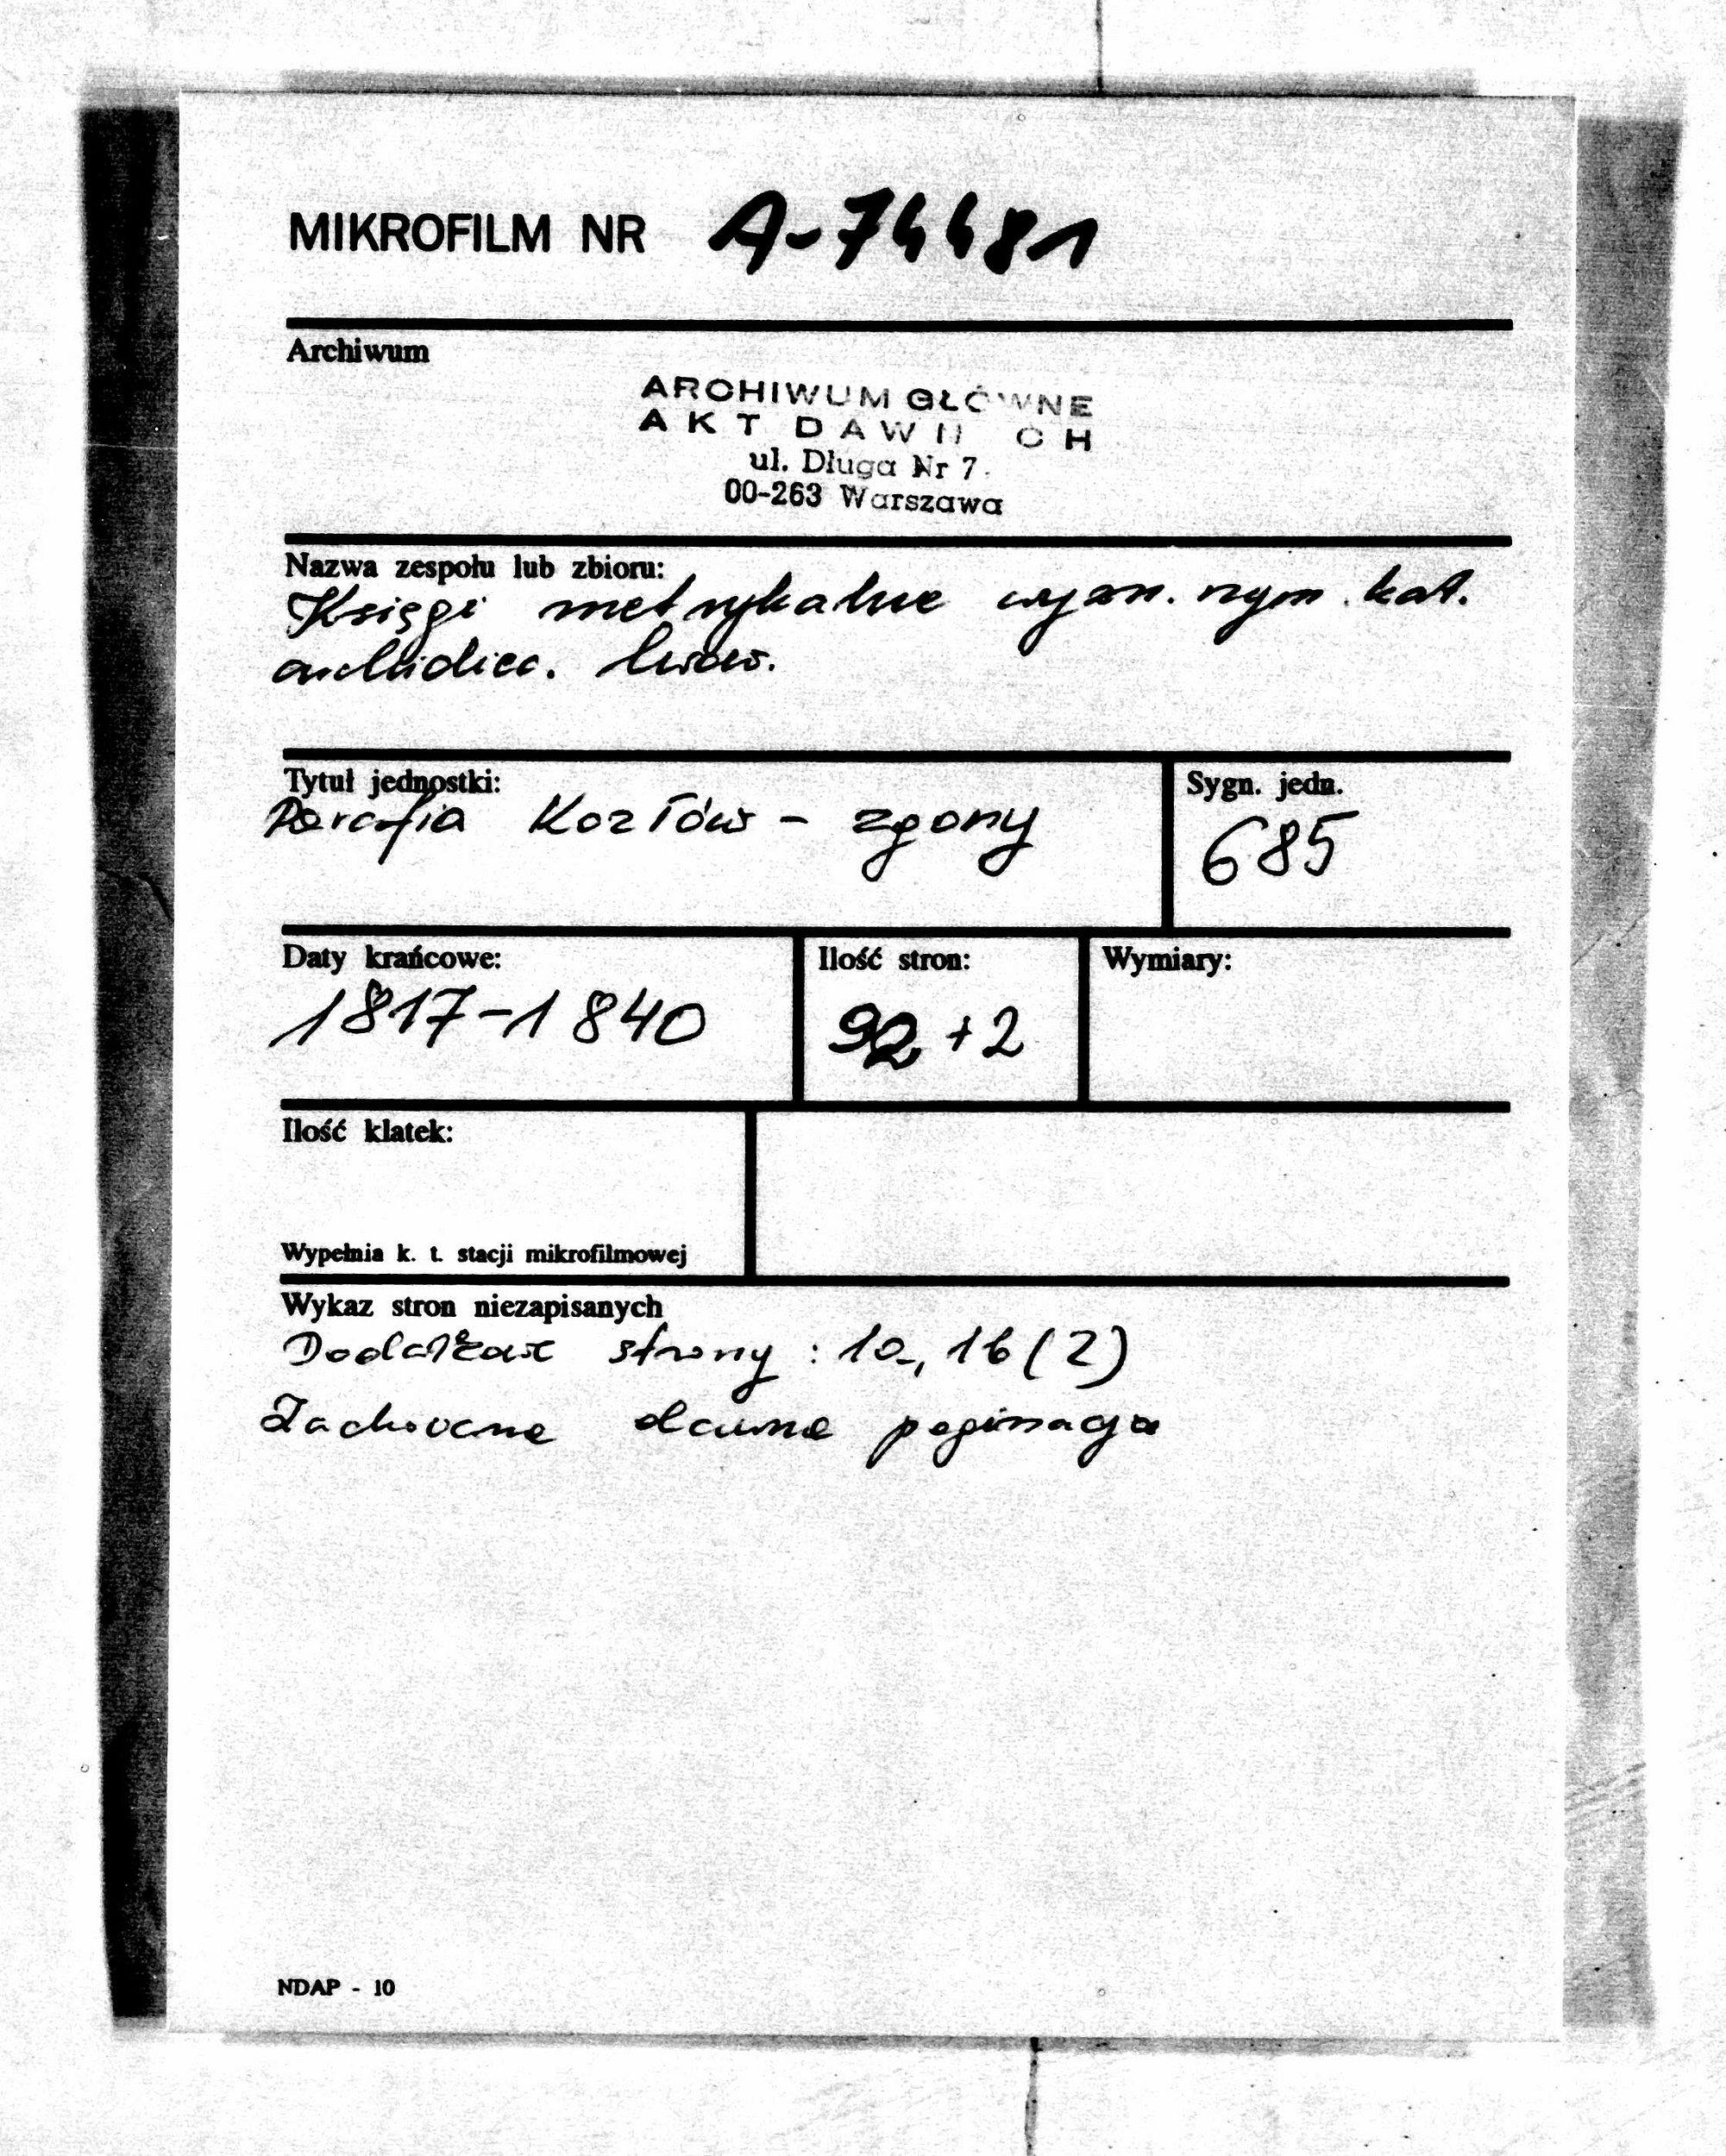 MIKROFILM NR A-74481
Archiwum
ARCHIWUM GŁÓWNE
AKT DAWN CH
ul. Długa Nr 7.
00-263 Warszawa
Nazwa zespołu lub zbioru:
Księgi metrykalne wyzn. rzym. kat.
archidiec. lwow.
Tytuł jednostki:
Parafia Kozłów - zgony
Sygn. jedn.
685
Daty krańcowe:
1817-1840
Ilość stron:
92 +2
Wymiary:
Ilość klatek:
Wypełnia k. t. stacji mikrofilmowej
Wykaz stron niezapisanych
Dodatkowe strony : 1a, 1b (2)
Zachowana dawna paginacja
NDAP - 10